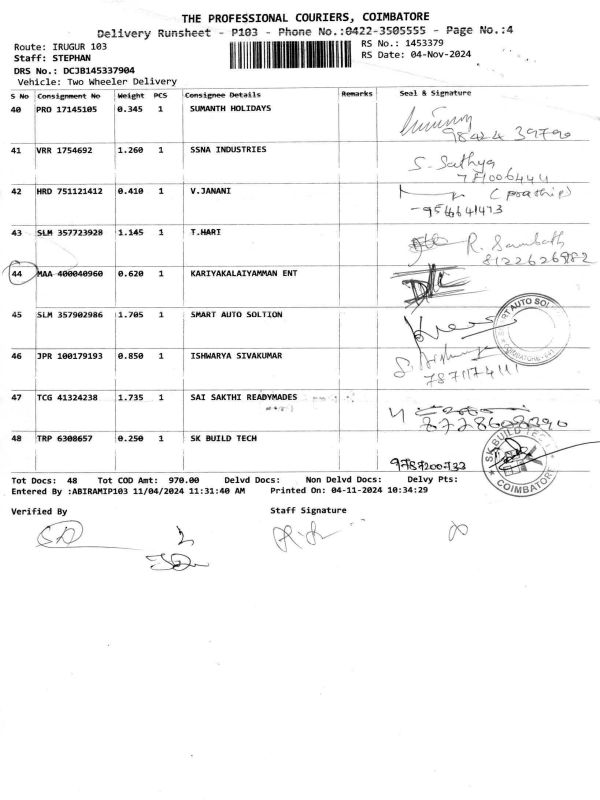 THE PROFESSIONAL COURIERS, COIMBATORE
Delivery Runsheet - P103 - Phone No.:0422-3505555 - Page No.:4
Route: IRUGUR 103
RS No.: 1453379
Staff: STEPHAN
RS Date: 04-Nov-2024
DRS No.: DCJB145337904
Vehicle: Two Wheeler Delivery
S No Consignment No Weight PCS Consignee Details Remarks Seal & Signature
40 PRO 17145105 0.345 1 SUMANTH HOLIDAYS
98424 39790
41 VRR 1754692 1.260 1 SSNA INDUSTRIES
S. Sathya
42 HRD 751121412 0.410 1 V.JANANI
43 SLM 357723928 1.145 1 T.HARI
R. Sambath
8122626982
44 MAA 400040960 0.620 1 KARIYAKALAIYAMMAN ENT
45 SLM 357902986 1.705 1 SMART AUTO SOLTION
RT AUTO SOL
COIMBATORE
46 JPR 100179193 0.850 1 ISHWARYA SIVAKUMAR
47 TCG 41324238 1.735 1 SAI SAKTHI READYMADES
48 TRP 6308657 0.250 1 SK BUILD TECH
9787200733
SK BUILD TECH
COIMBATORE
Tot Docs: 48 Tot COD Amt: 970.00 Delvd Docs: Non Delvd Docs: Delvy Pts:
Entered By :ABIRAMIP103 11/04/2024 11:31:40 AM Printed On: 04-11-2024 10:34:29
Verified By Staff Signature